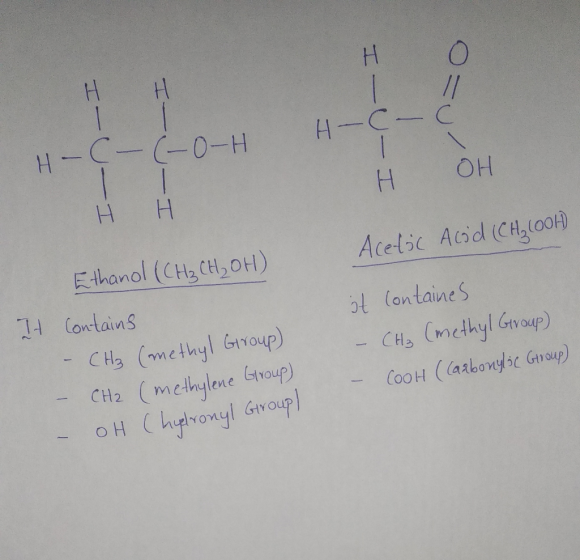 H H
H-C-C-O-H
H H
Ethanol (CH3CH2OH)
It Contains
- CH3 (methyl Group)
- CH2 (methylene Group)
- OH (hydronyl Group)
H O
H-C-C
H OH
Acetic Acid (CH3COOH)
it Containes
- CH3 (methyl Group)
- COOH (Carbonylic Group)